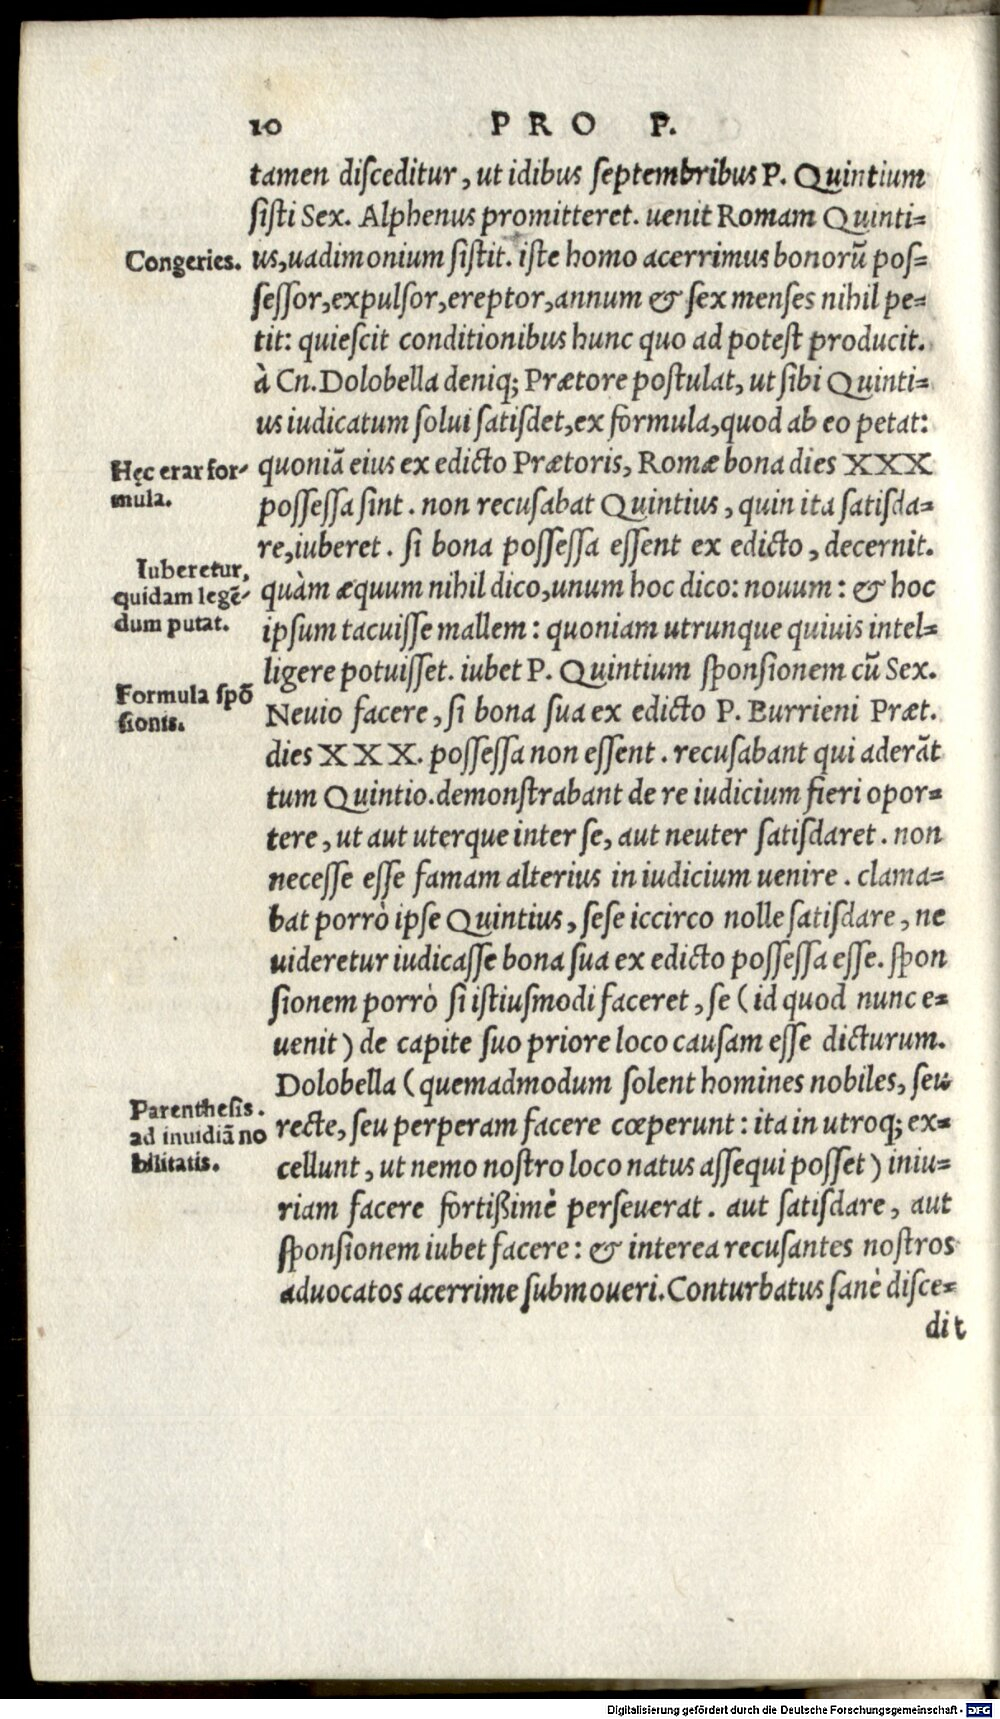 10 PRO P.
tamen disceditur, ut idibus septembribus P. Quintium
sisti Sex. Alphenus promitteret. uenit Romam Quinti-
Congeries.
us, uadimonium sistit. iste homo acerrimus bonorũ pos-
sessor, expulsor, ereptor, annum & sex menses nihil pe-
tit: quiescit conditionibus hunc quo ad potest producit.
à Cn. Dolobella deniq; Prætore postulat, ut sibi Quinti-
us iudicatum solui satisdet, ex formula, quod ab eo petat:
Hęc erar for-
mula.
quoniã eius ex edicto Prætoris, Romæ bona dies XXX
possessa sint. non recusabat Quintius, quin ita satisda-
re, iuberet. si bona possessa essent ex edicto, decernit.
Iuberetur,
quidam legẽ-
dum putat.
quàm æquum nihil dico, unum hoc dico: nouum: & hoc
ipsum tacuisse mallem: quoniam utrunque quiuis intel-
ligere potuisset. iubet P. Quintium sponsionem cũ Sex.
Formula spõ
sionis.
Neuio facere, si bona sua ex edicto P. Burrieni Præt.
dies XXX. possessa non essent. recusabant qui aderãt
tum Quintio. demonstrabant de re iudicium fieri opor-
tere, ut aut uterque inter se, aut neuter satisdaret. non
necesse esse famam alterius in iudicium uenire. clama-
bat porrò ipse Quintius, sese iccirco nolle satisdare, ne
uideretur iudicasse bona sua ex edicto possessa esse. spon
sionem porrò si istiusmodi faceret, se (id quod nunc e-
uenit) de capite suo priore loco causam esse dicturum.
Dolobella (quemadmodum solent homines nobiles, seu
Parenthesis.
ad inuidiã no
bilitatis.
recte, seu perperam facere cœperunt: ita in utroq; ex-
cellunt, ut nemo nostro loco natus assequi posset) iniu-
riam facere fortißimè perseuerat. aut satisdare, aut
sponsionem iubet facere: & interea recusantes nostros
aduocatos acerrime submoueri. Conturbatus sanè disce-
dit
Digitalisierung gefördert durch die Deutsche Forschungsgemeinschaft - DFG